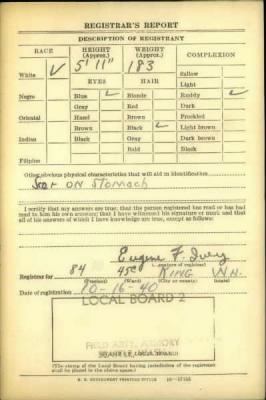 REGISTRAR'S REPORT
DESCRIPTION OF REGISTRANT
RACE HEIGHT (Approx.) WEIGHT (Approx.) COMPLEXION
5' 11" 183
White ✓ Sallow
EYES HAIR Light
Negro Blue ✓ Blonde Ruddy ✓
Gray Red Dark
Oriental Hazel Brown Freckled
Brown Black ✓ Light brown
Indian Black Gray Dark brown
Bald Black
Filipino
Other obvious physical characteristics that will aid in identification
Scar on Stomach
I certify that my answers are true; that the person registered has read or has
had read to him his own answers; that I have witnessed his signature or mark and that
all of his answers of which I have knowledge are true, except as follows:
Eugene F.
(Signature of registrar)
Registrar for 84 45th King
(Precinct) (Ward) (City or County) (State)
Date of registration 10-16-40
LOCAL BOARD 2
FIELD ARTY. ARMORY
(STAMP OF LOCAL BOARD)
(The stamp of the Local Board having jurisdiction of the registrant
shall be placed in the above space.)
U. S. GOVERNMENT PRINTING OFFICE